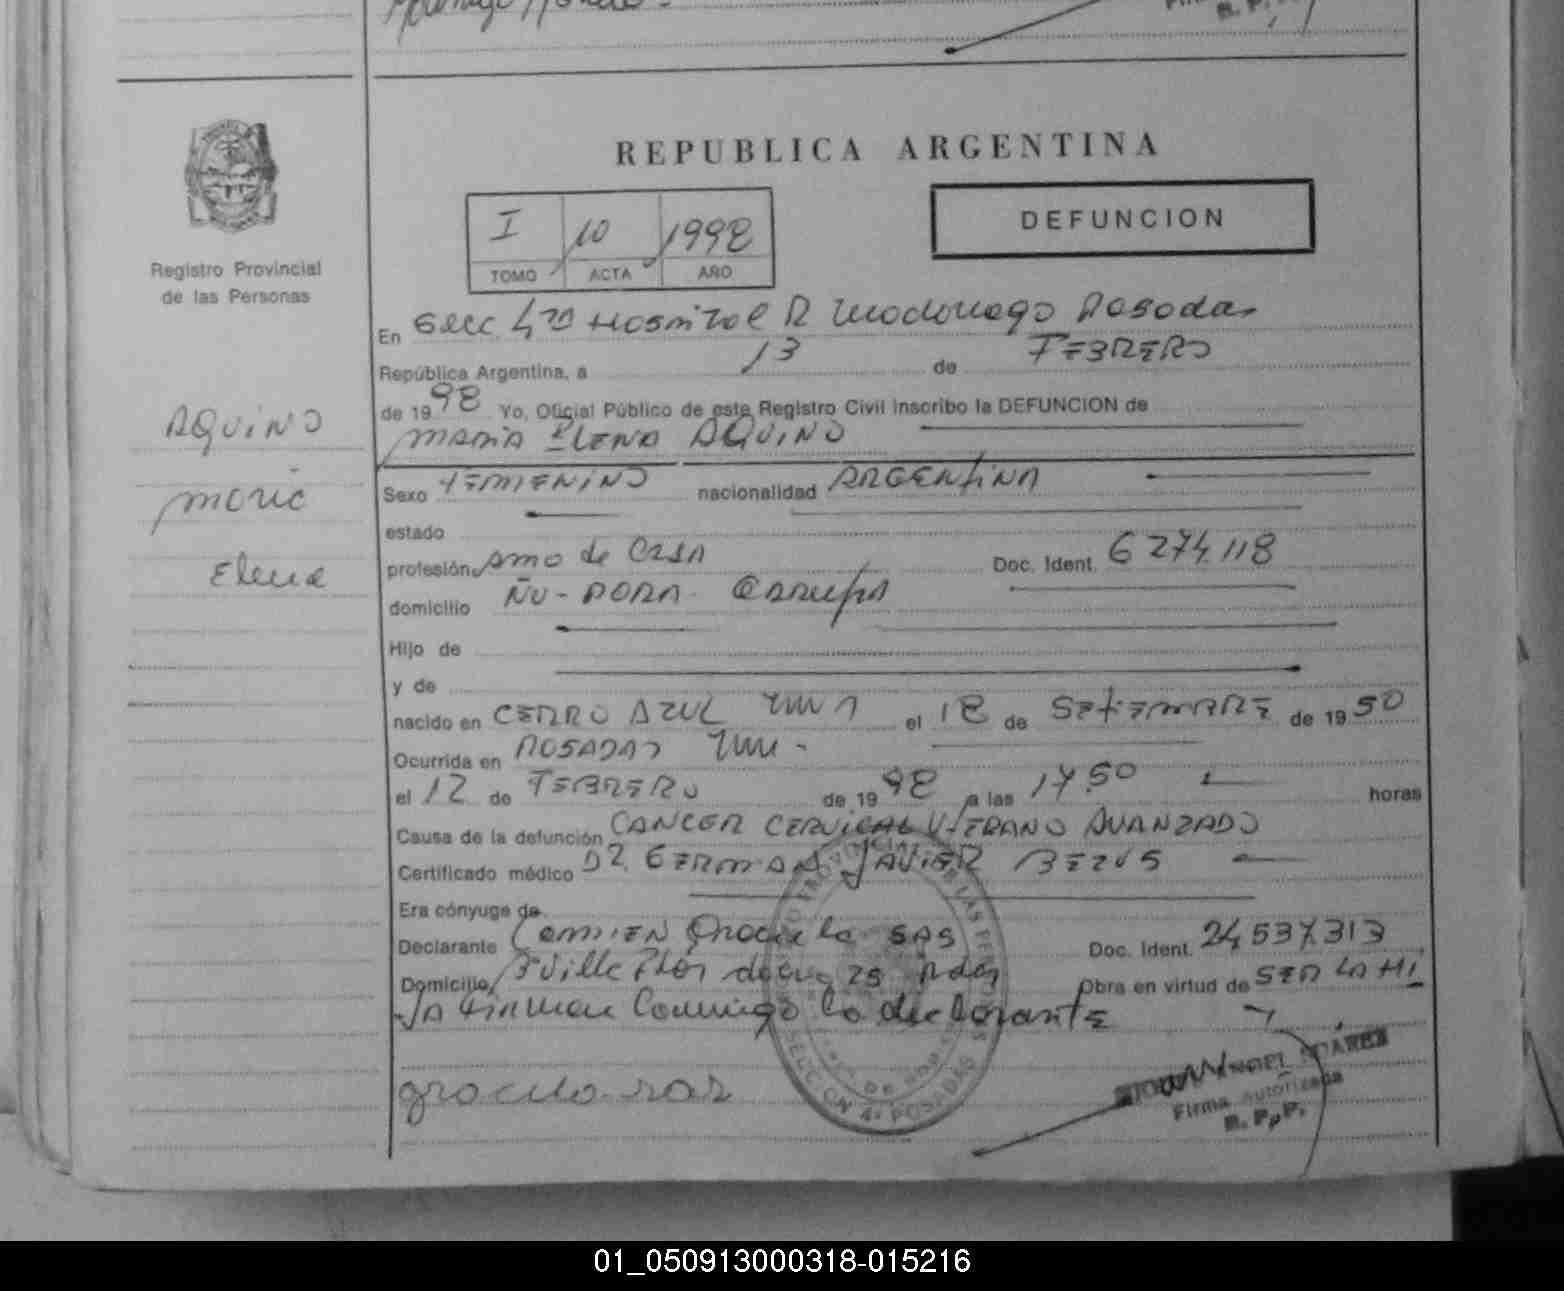 REPUBLICA ARGENTINA
I 10 1998
TOMO ACTA AÑO
DEFUNCION
Registro Provincial
de las Personas
AQUINO
Maria
Elena
En Secc 4ta Hospital R Madariaga Posadas
República Argentina, a 13 de FEBRERO
de 1998 Yo, Oficial Público de este Registro Civil inscribo la DEFUNCION de
MARIA ELENA AQUINO
Sexo FEMENINO nacionalidad ARGENTINA
estado
profesión Ama de CASA Doc. Ident. 6274.118
domicilio ÑU-PORA- GARUPA
Hijo de
y de
nacido en CERRO AZUL el 18 de SETIEMBRE de 1950
Ocurrida en POSADAS
el 12 de FEBRERO de 1998 a las 17,50 horas
Causa de la defunción CANCER CERVICAL UTERINO AVANZADO
Certificado médico DR. GERMAN JAVIER
Era cónyuge de
Declarante Graciela SAS Doc. Ident. 24537313
Domicilio Obra en virtud de SER LA HI
JA Firman Conmigo la declarante
graciela sas
SECCION 4ª POSADAS
ANGEL SUAREZ
Firma Autorizada
R. P. P.
01_050913000318-015216